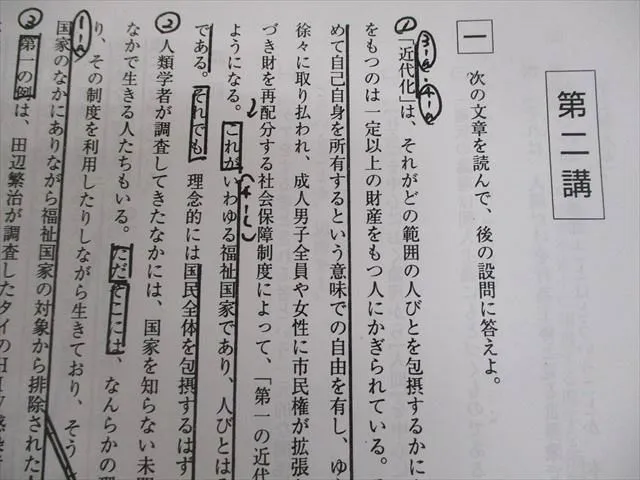 第二講
一 次の文章を読んで、後の設問に答えよ。
① 「近代化」は、それがどの範囲の人びとを包摂するかによ
をもつのは一定以上の財産をもつ人にかぎられている。
めて自己自身を所有するという意味での自由を有し、ゆ
徐々に取り払われ、成人男子全員や女性に市民権が拡張し
づき財を再配分する社会保障制度によって、「第一の近代
ようになる。これがいわゆる福祉国家であり、人びとは
である。それでも、理念的には国民全体を包摂するはず
② 人類学者が調査してきたなかには、国家を知らない未開
なかで生きる人たちもいる。ただそこには、なんらかの理
り、その制度を利用したりしながら生きており、そう
国家のなかにありながら福祉国家の対象から排除された人
③ 第一の例は、田辺繁治が調査したタイのHIV感染